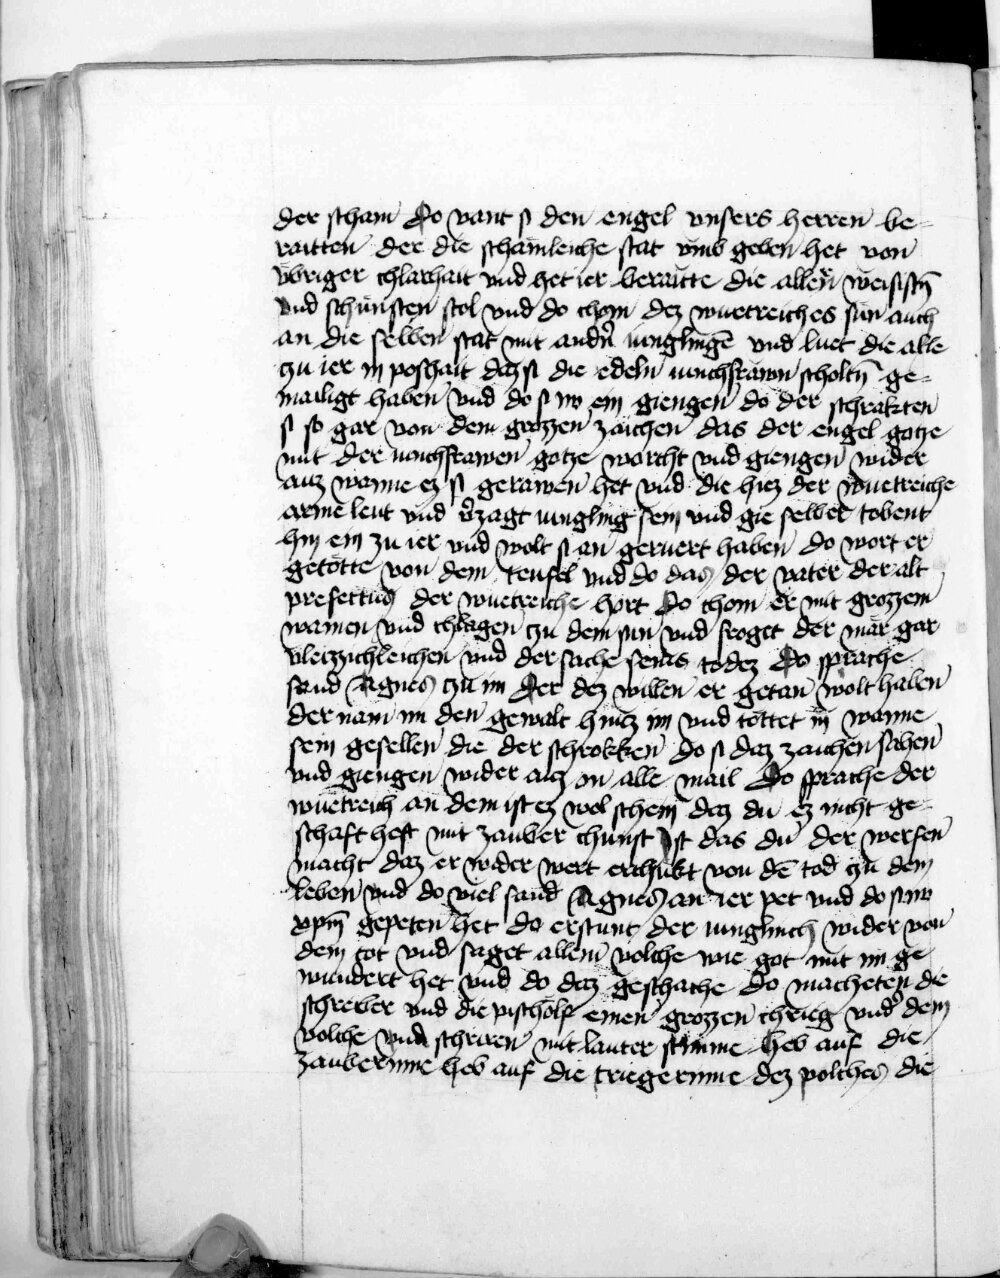 der scham Do vant si den engel unsers herren be-
raitten der die schämleiche stat umb geben het von
übriger chlarhait vnd het ier beraitte die aller weisistn̄
vnd schünsten stol vnd do chom dez wuetreiches sun auch
an die selben stat mit andn̄ iunglingē vnd luet die alle
zu ier in poshait daz si die edeln iunchfrawn scholtn̄ ge-
mailigt haben vnd do si nv ein giengen do der schrakten
si so gar von dem grozzen zaichen das der engel gotze
mit der iunchfrawen gotze worcht vnd giengen wider
auz wanne ez si gerawen het vnd die hiez der wuetreiche
arme leut vnd v̄zagt iungling sein vnd gie selber tobent
hin ein zu ier vnd wolt si an geruert haben do wort er
getötte von dem teufel vnd do das der vater der alt
prefectus der wuetreiche hort Do chom er mit grozzem
wainen vnd chlagen zu dem sun vnd froget der mär gar
vleizzichleichen vnd der sache seins todez Do sprache
sand Agnes zu im Der dez willen er getan wolt haben
der nam im den gewalt hincz im vnd töttet in wanne
sein gesellen die der schrokken do si daz zaichen sahen
vnd giengen wider auz an alle mail Do sprache der
wuetreich an dem ist ez wol schein daz du ez nicht ge-
schaft hest mit zauber chunst Ist das du der werfen
macht daz er wider wert erchukt von dē tod zu dem
leben vnd do viel sand Agnes an ier pet vnd do si nv
xpm̄ gepeten het do erstunt der iunglinch wider von
dem tot vnd saget allem volche wie got mit im ge
wundert het vnd do daz geschache Do macheten die
schreiber vnd die pischolf einen grozzen chrieg vnd̄ dem
volche vnd schriren mit lauter stimme heb auf die
zauberinne heb auf die triegerinne dez volches die